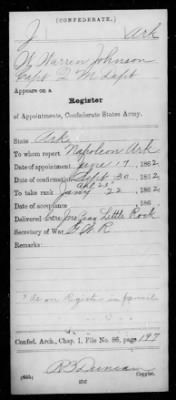 (CONFEDERATE.)
J Ark
W Warren Johnson
Capt Q M Dept
Appears on a
Register
of Appointments, Confederate States Army.
State Ark
To whom report Napoleon Ark
Date of appointment June 17, 1862
Date of confirmation Sept 30, 1862
To take rank Jany 22, 1862
Date of acceptance , 186 .
Delivered Little Rock
Secretary of War G. W. R.
Remarks:
as on Register in
Confed. Arch., Chap. 1, File No. 86, page 197
R B Duncan
Copyist.